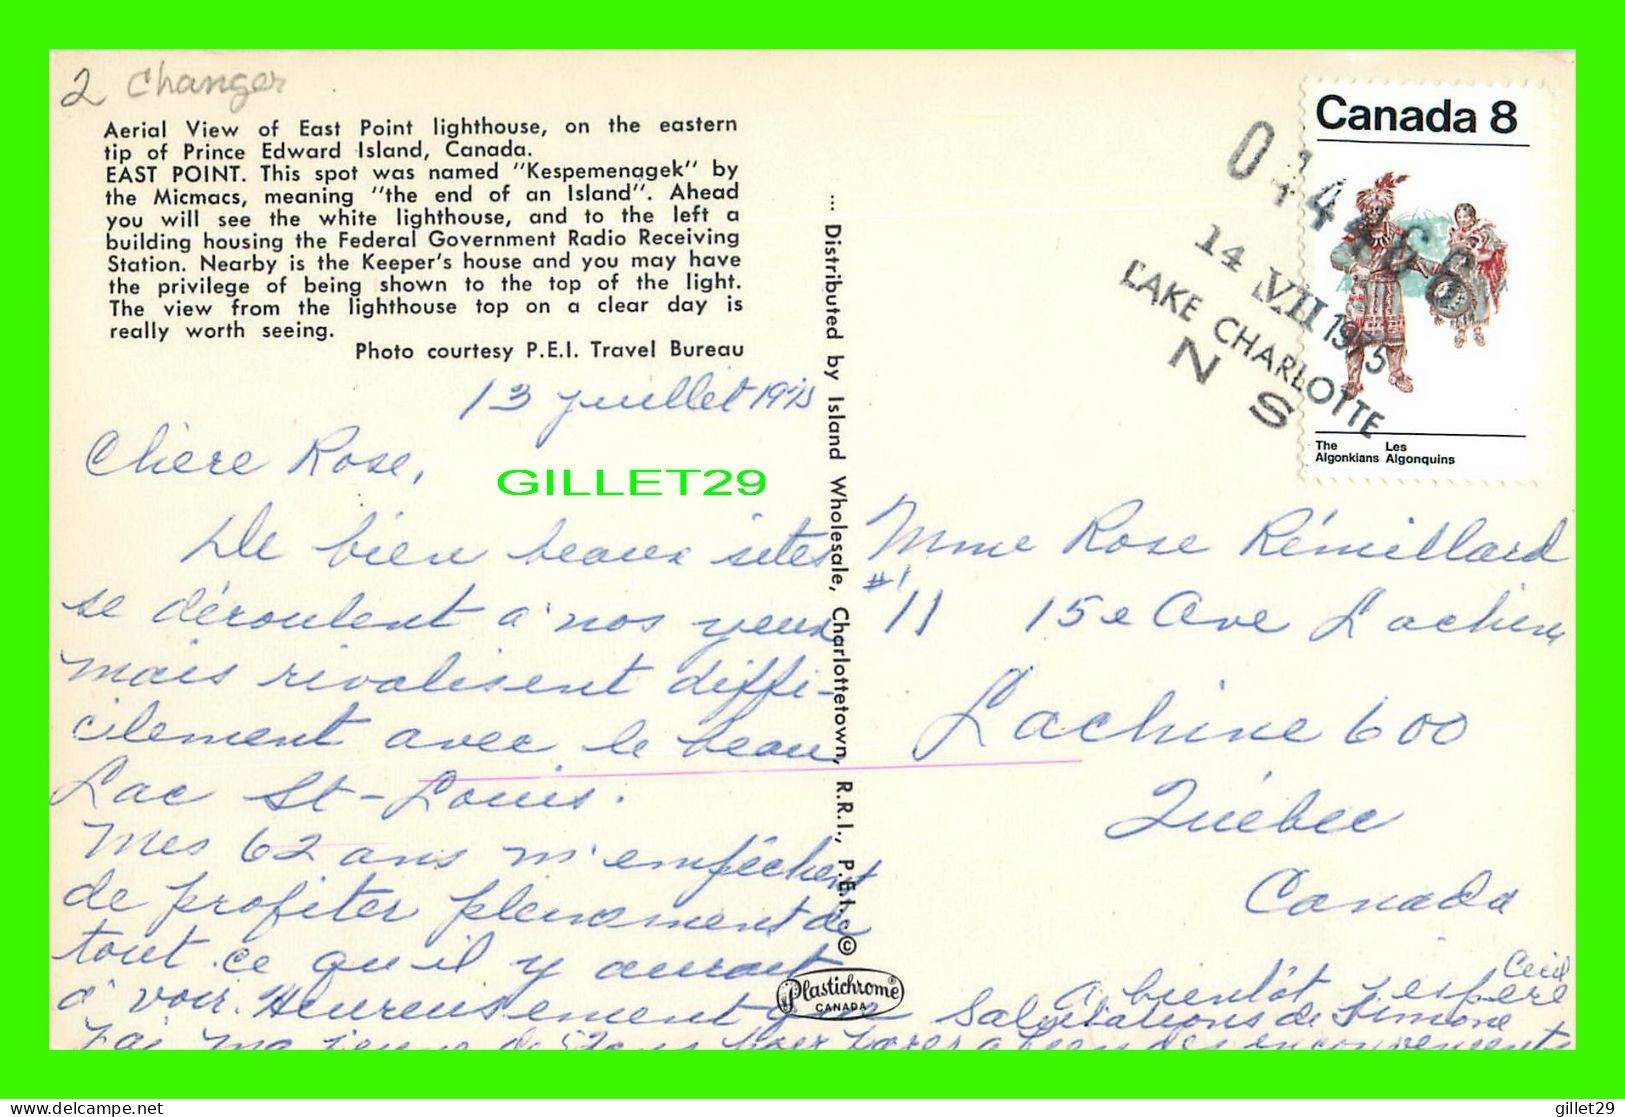 2 Changer
Aerial View of East Point lighthouse, on the eastern
tip of Prince Edward Island, Canada.
EAST POINT. This spot was named "Kespemenagek" by
the Micmacs, meaning "the end of an Island". Ahead
you will see the white lighthouse, and to the left a
building housing the Federal Government Radio Receiving
Station. Nearby is the Keeper's house and you may have
the privilege of being shown to the top of the light.
The view from the lighthouse top on a clear day is
really worth seeing.
Photo courtesy P.E.I. Travel Bureau
13 juillet 1975
Chère Rose,
GILLET29
De bien beaux sites
se déroulent à nos yeux
mais rivalisent diffi-
cilement avec le beau
Lac St-Louis.
Mes 62 ans m'empêchent
de profiter pleinement de
tout ce qu'il y aurait
à voir. Heureusement que
j'ai ma jeune de 52 ans pour parer à bien des inconvénients
... Distributed by Island Wholesale, Charlottetown, R.R.1., P.E.I. ©
Plastichrome®
CANADA
Canada 8
The Les
Algonkians Algonquins
14 VII 1975
LAKE CHARLOTTE
N S
Mme Rose Rémillard
#1
11 15e Ave Lachine
Lachine 600
Québec
Canada
à bientôt j'espère
Cecil
Salutations de Simone
delcampe.net
gillet29